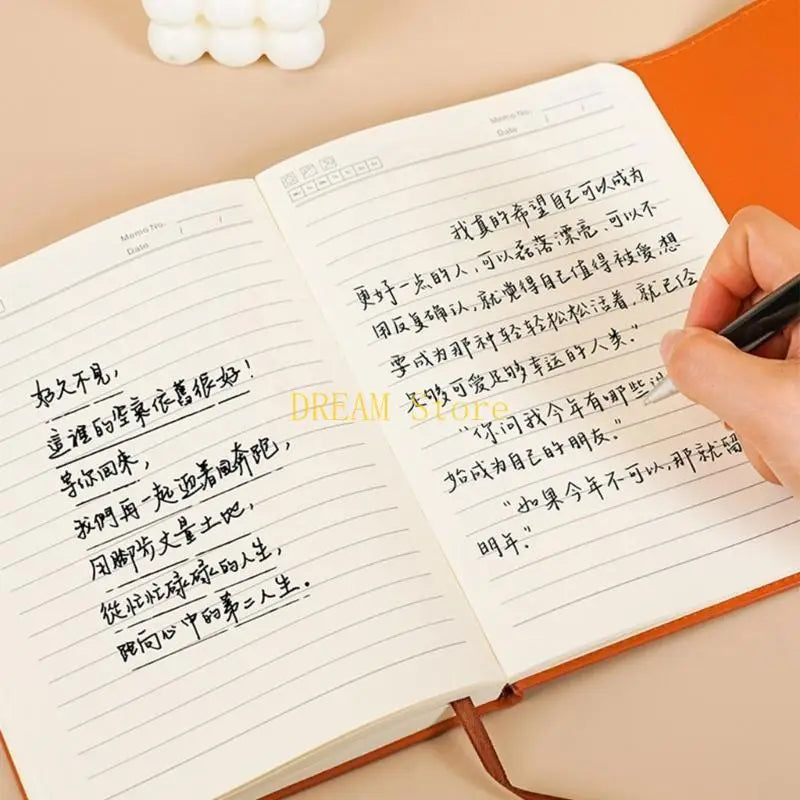 Memo No.
Date / /
好久不見，
這裡的空氣依舊很好！
等你回来，
我們再一起迎着风奔跑，
用脚步丈量土地，
從忙忙碌碌的人生，
跑向心中的第二人生。
Memo No.
Date / /
我真的希望自己可以成为
更好一点的人，可以磊落漂亮、可以不
用反复确认，就觉得自己值得被爱，想
要成为那种轻轻松松活着，就已经
足够可爱足够幸运的人类。”
“你问我今年有哪些
始成为自己的朋友。”
“如果今年不可以，那就留
明年。”
DREAM Store